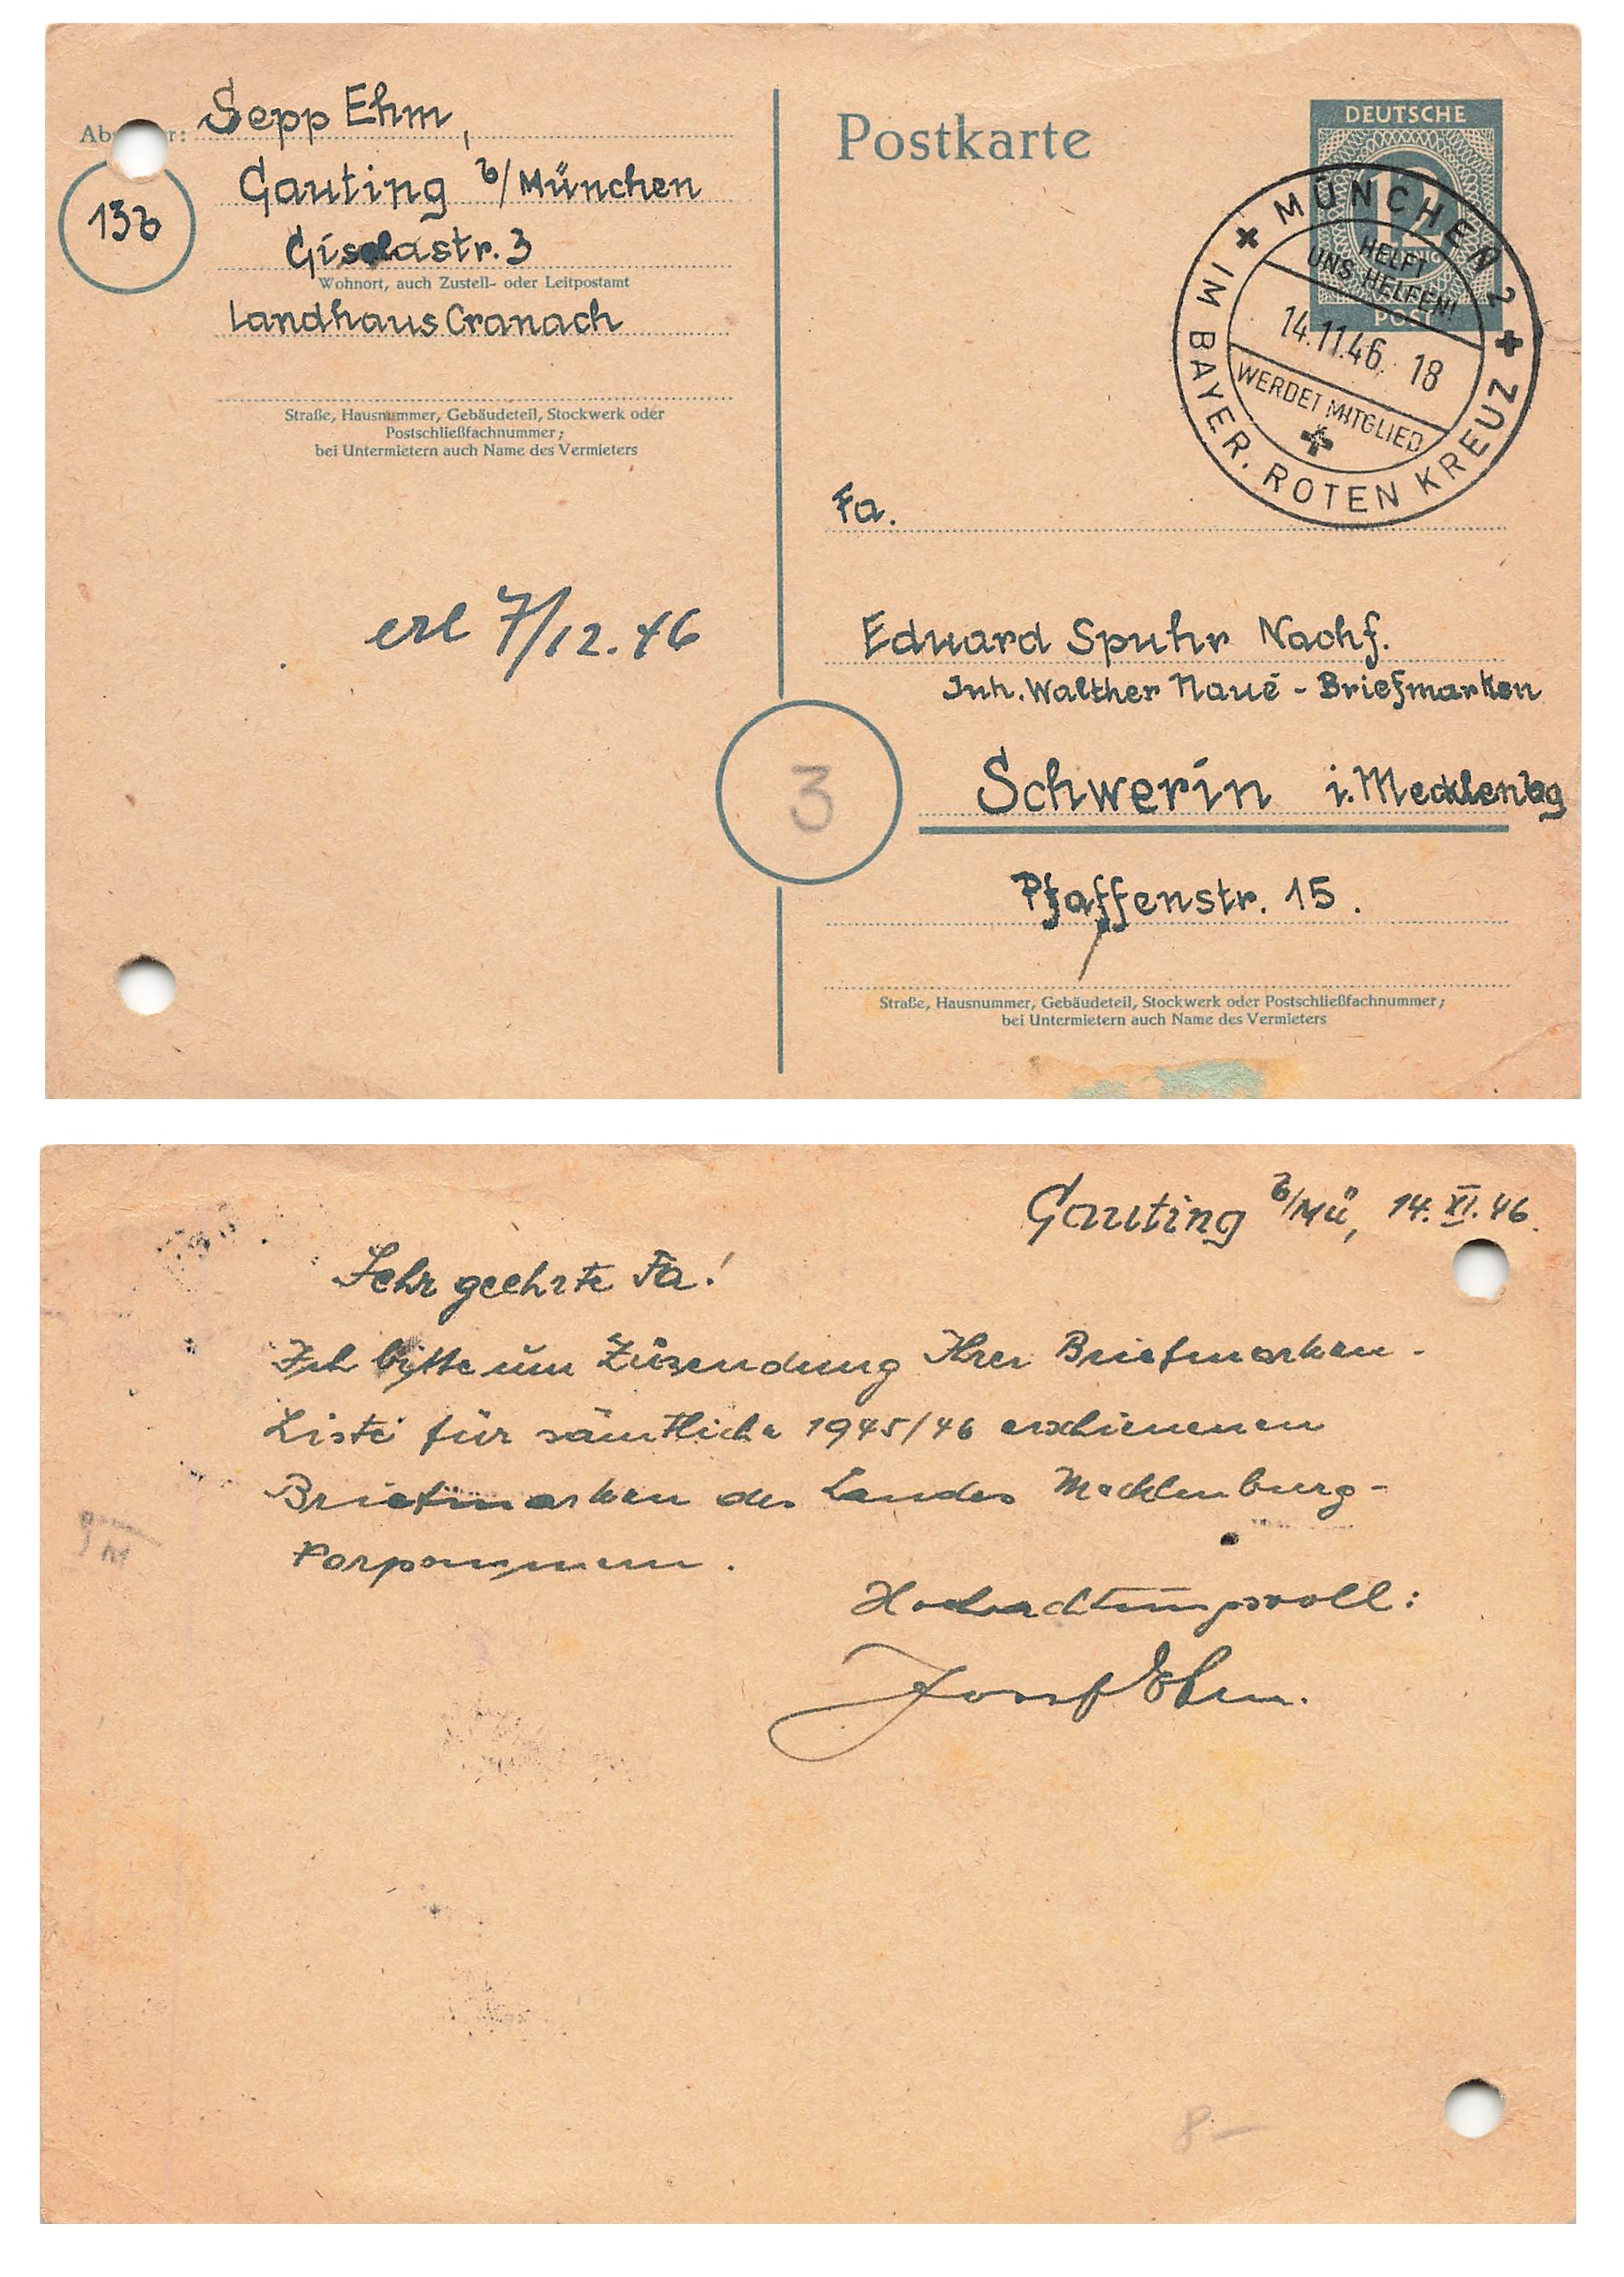 Sepp Ehm,
Gauting b/München
13b
Giselastr. 3
Wohnort, auch Zustell- oder Leitpostamt
Landhaus Cranach
Straße, Hausnummer, Gebäudeteil, Stockwerk oder
Postschließfachnummer;
bei Untermietern auch Name des Vermieters
erl 7/12.46
Postkarte
DEUTSCHE
POST
MÜNCHEN 2
HELFT
UNS HELFEN!
14.11.46. 18
WERDET MITGLIED
IM BAYER. ROTEN KREUZ
Fa.
Eduard Spuhr Nachf.
Inh. Walther Naué - Briefmarken
3
Schwerin i. Mecklenbg
Pfaffenstr. 15.
Straße, Hausnummer, Gebäudeteil, Stockwerk oder Postschließfachnummer;
bei Untermietern auch Name des Vermieters
Gauting b/Mü, 14. XI. 46.
Sehr geehrte Fa!
Ich bitte um Zusendung Ihrer Briefmarken-
Liste für sämtliche 1945/46 erschienenen
Briefmarken des Landes Mecklenburg-
Vorpommern.
Hochachtungsvoll:
Josef Ehm.
8-